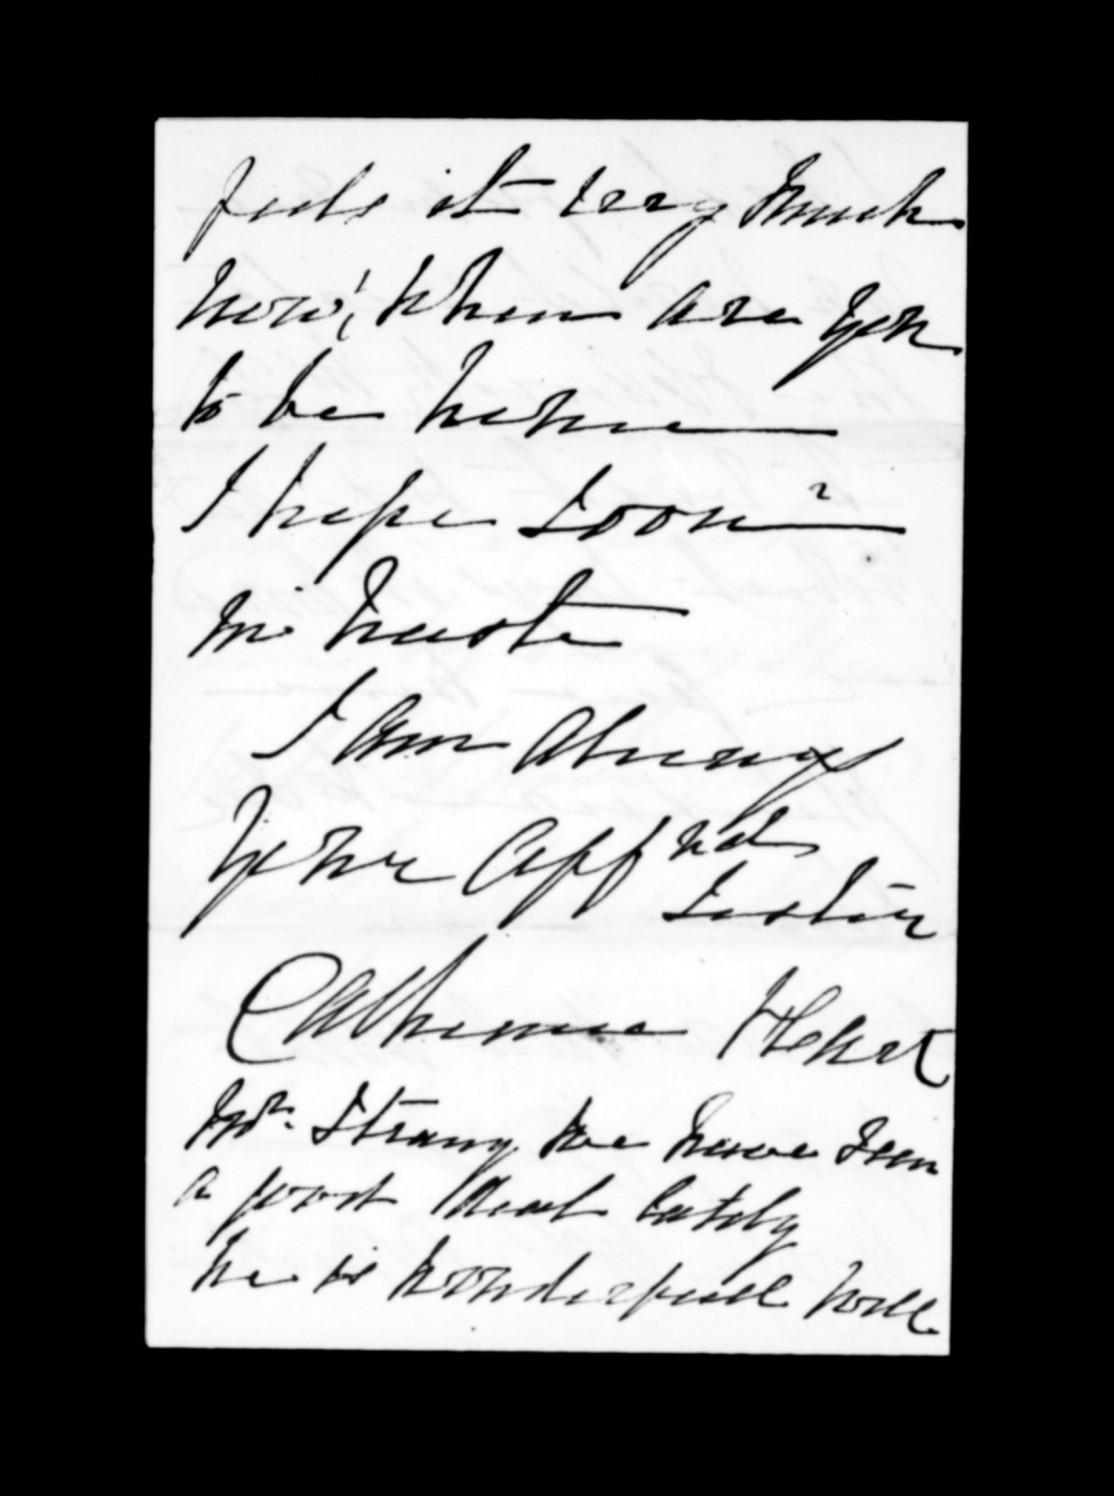 feels it very much
now, when are you
to be home
I hope soon?
in haste
I am always
your aff
sister
Catherine Hart
Mr. Strang we have seen
a good deal lately
he is wonderfull well